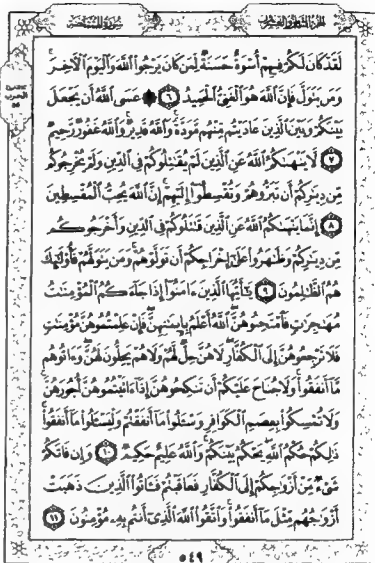 الجزء الثامن والعشرون سورة الممتحنة
لَقَدْ كَانَ لَكُمْ فِيهِمْ أُسْوَةٌ حَسَنَةٌ لِّمَن كَانَ يَرْجُوا۟ ٱللَّهَ وَٱلْيَوْمَ ٱلْءَاخِرَ ۚ
وَمَن يَتَوَلَّ فَإِنَّ ٱللَّهَ هُوَ ٱلْغَنِىُّ ٱلْحَمِيدُ ٦ ۞ عَسَى ٱللَّهُ أَن يَجْعَلَ
بَيْنَكُمْ وَبَيْنَ ٱلَّذِينَ عَادَيْتُم مِّنْهُم مَّوَدَّةً ۚ وَٱللَّهُ قَدِيرٌ ۚ وَٱللَّهُ غَفُورٌ رَّحِيمٌ
٧ لَّا يَنْهَىٰكُمُ ٱللَّهُ عَنِ ٱلَّذِينَ لَمْ يُقَٰتِلُوكُمْ فِى ٱلدِّينِ وَلَمْ يُخْرِجُوكُم
مِّن دِيَٰرِكُمْ أَن تَبَرُّوهُمْ وَتُقْسِطُوٓا۟ إِلَيْهِمْ ۚ إِنَّ ٱللَّهَ يُحِبُّ ٱلْمُقْسِطِينَ
٨ إِنَّمَا يَنْهَىٰكُمُ ٱللَّهُ عَنِ ٱلَّذِينَ قَٰتَلُوكُمْ فِى ٱلدِّينِ وَأَخْرَجُوكُم
مِّن دِيَٰرِكُمْ وَظَٰهَرُوا۟ عَلَىٰٓ إِخْرَاجِكُمْ أَن تَوَلَّوْهُمْ ۚ وَمَن يَتَوَلَّهُمْ فَأُو۟لَٰٓئِكَ
هُمُ ٱلظَّٰلِمُونَ ٩ يَٰٓأَيُّهَا ٱلَّذِينَ ءَامَنُوٓا۟ إِذَا جَآءَكُمُ ٱلْمُؤْمِنَٰتُ
مُهَٰجِرَٰتٍ فَٱمْتَحِنُوهُنَّ ۖ ٱللَّهُ أَعْلَمُ بِإِيمَٰنِهِنَّ ۖ فَإِنْ عَلِمْتُمُوهُنَّ مُؤْمِنَٰتٍ
فَلَا تَرْجِعُوهُنَّ إِلَى ٱلْكُفَّارِ ۖ لَا هُنَّ حِلٌّ لَّهُمْ وَلَا هُمْ يَحِلُّونَ لَهُنَّ ۖ وَءَاتُوهُم
مَّآ أَنفَقُوا۟ ۚ وَلَا جُنَاحَ عَلَيْكُمْ أَن تَنكِحُوهُنَّ إِذَآ ءَاتَيْتُمُوهُنَّ أُجُورَهُنَّ ۚ
وَلَا تُمْسِكُوا۟ بِعِصَمِ ٱلْكَوَافِرِ وَسْـَٔلُوا۟ مَآ أَنفَقْتُمْ وَلْيَسْـَٔلُوا۟ مَآ أَنفَقُوا۟ ۚ
ذَٰلِكُمْ حُكْمُ ٱللَّهِ ۖ يَحْكُمُ بَيْنَكُمْ ۚ وَٱللَّهُ عَلِيمٌ حَكِيمٌ ١٠ وَإِن فَاتَكُمْ
شَىْءٌ مِّنْ أَزْوَٰجِكُمْ إِلَى ٱلْكُفَّارِ فَعَاقَبْتُمْ فَـَٔاتُوا۟ ٱلَّذِينَ ذَهَبَتْ
أَزْوَٰجُهُم مِّثْلَ مَآ أَنفَقُوا۟ ۚ وَٱتَّقُوا۟ ٱللَّهَ ٱلَّذِىٓ أَنتُم بِهِۦ مُؤْمِنُونَ ١١
٥٤٩